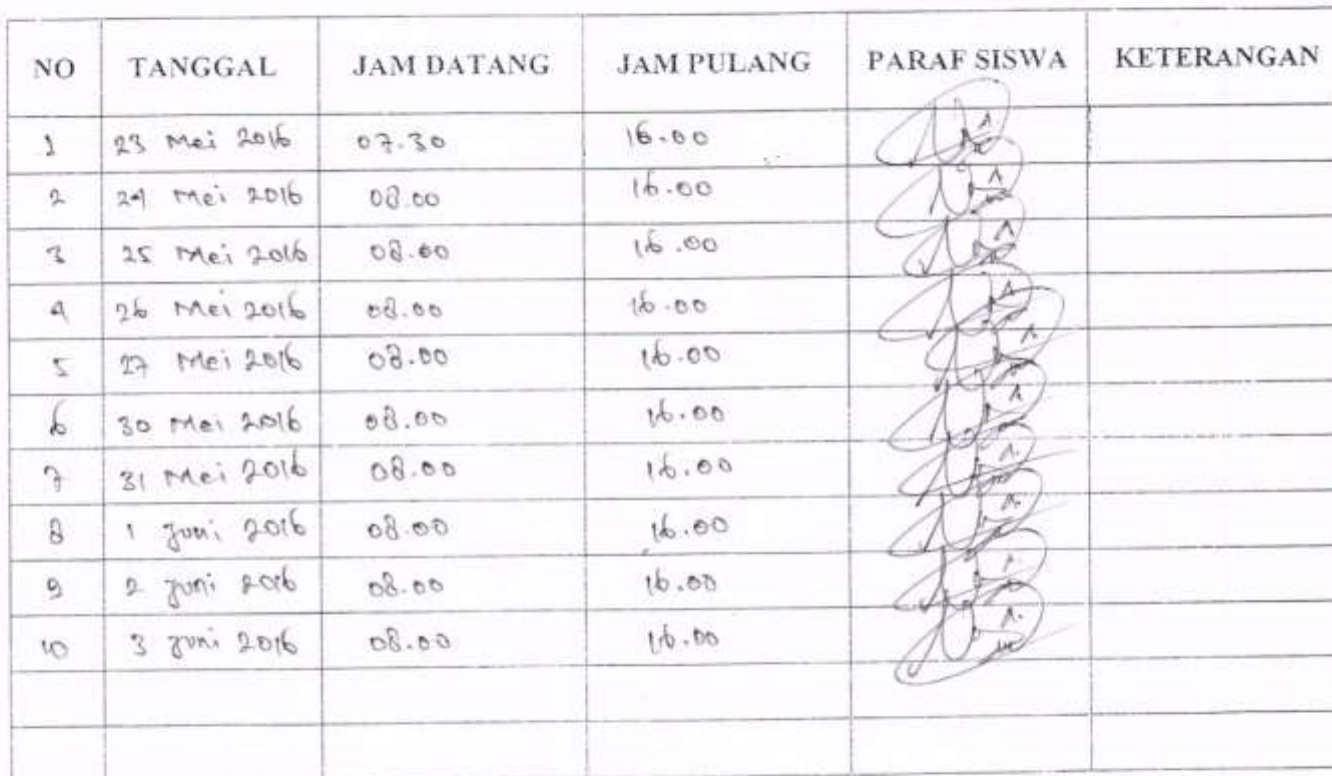 NO TANGGAL JAM DATANG JAM PULANG PARAF SISWA KETERANGAN
1 23 Mei 2016 07.30 16.00
2 24 Mei 2016 08.00 16.00
3 25 Mei 2016 08.00 16.00
4 26 Mei 2016 08.00 16.00
5 27 Mei 2016 08.00 16.00
6 30 Mei 2016 08.00 16.00
7 31 Mei 2016 08.00 16.00
8 1 Juni 2016 08.00 16.00
9 2 Juni 2016 08.00 16.00
10 3 Juni 2016 08.00 16.00